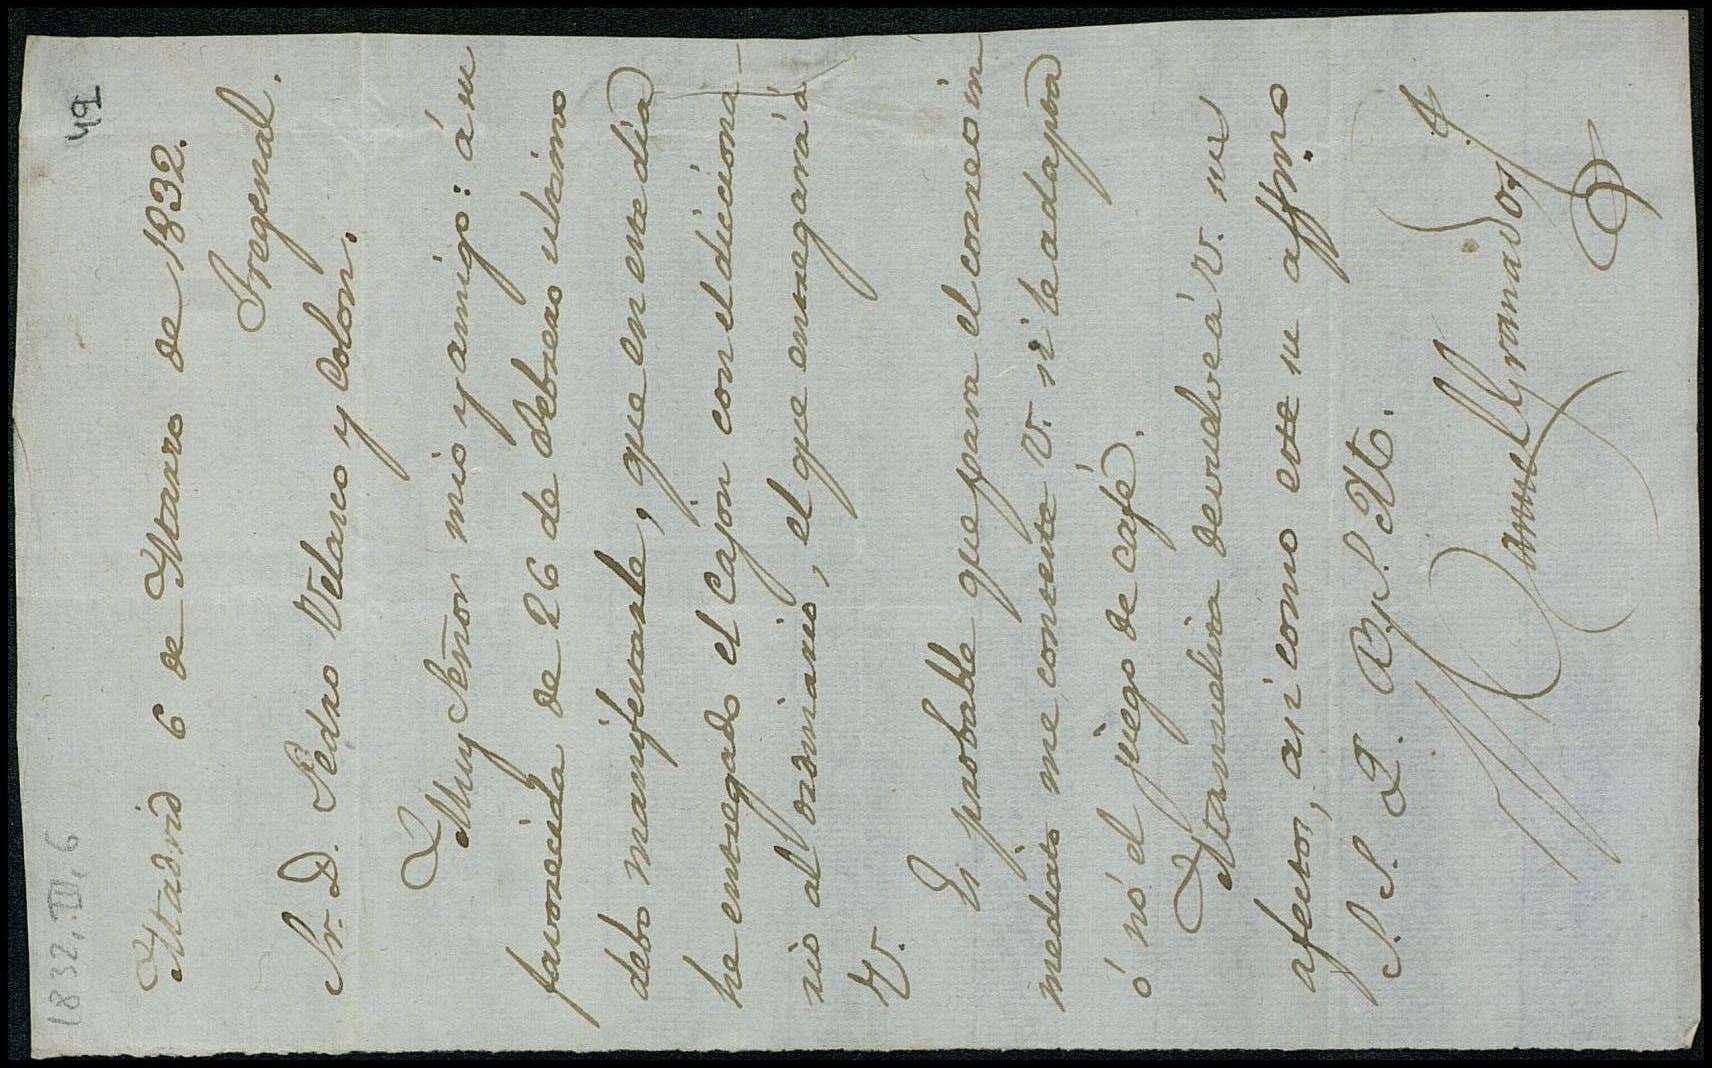 1832, III, 6
49
Madrid 6 de Marzo de 1832.
Fregenal.
Sr. D. Pedro Velasco y Colon.
Muy Señor mio y amigo: á su
favorecida de 26 de Febrero ultimo
debo manifestarle, que en este dia
he entregado el Cajon con el dicciona-
rio al ordinario, el que entregará á
V.
Es probable que para el correo in
mediato me conteste V. si le adapta
ó nó el juego de café.
Manuelita devuelve á V. sus
afectos, asi como este su affmo
S. S. Q. B. S. M.
Manuel Granados